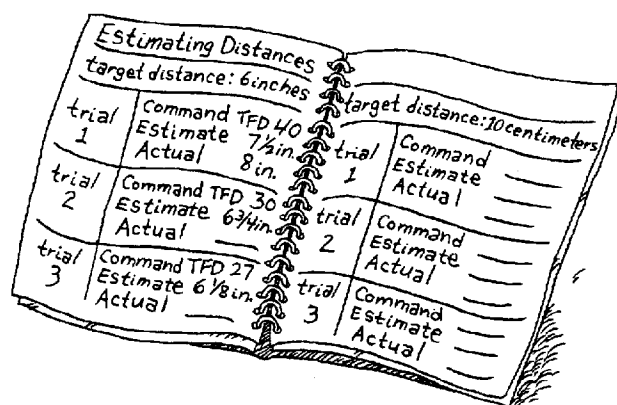 Estimating Distances
target distance: 6inches
trial 1
Command TFD 40
Estimate 7½in.
Actual 8in.
trial 2
Command TFD 30
Estimate 6¾in.
Actual
trial 3
Command TFD 27
Estimate 6⅛in.
Actual
target distance:10centimeters
trial 1
Command
Estimate
Actual
trial 2
Command
Estimate
Actual
trial 3
Command
Estimate
Actual